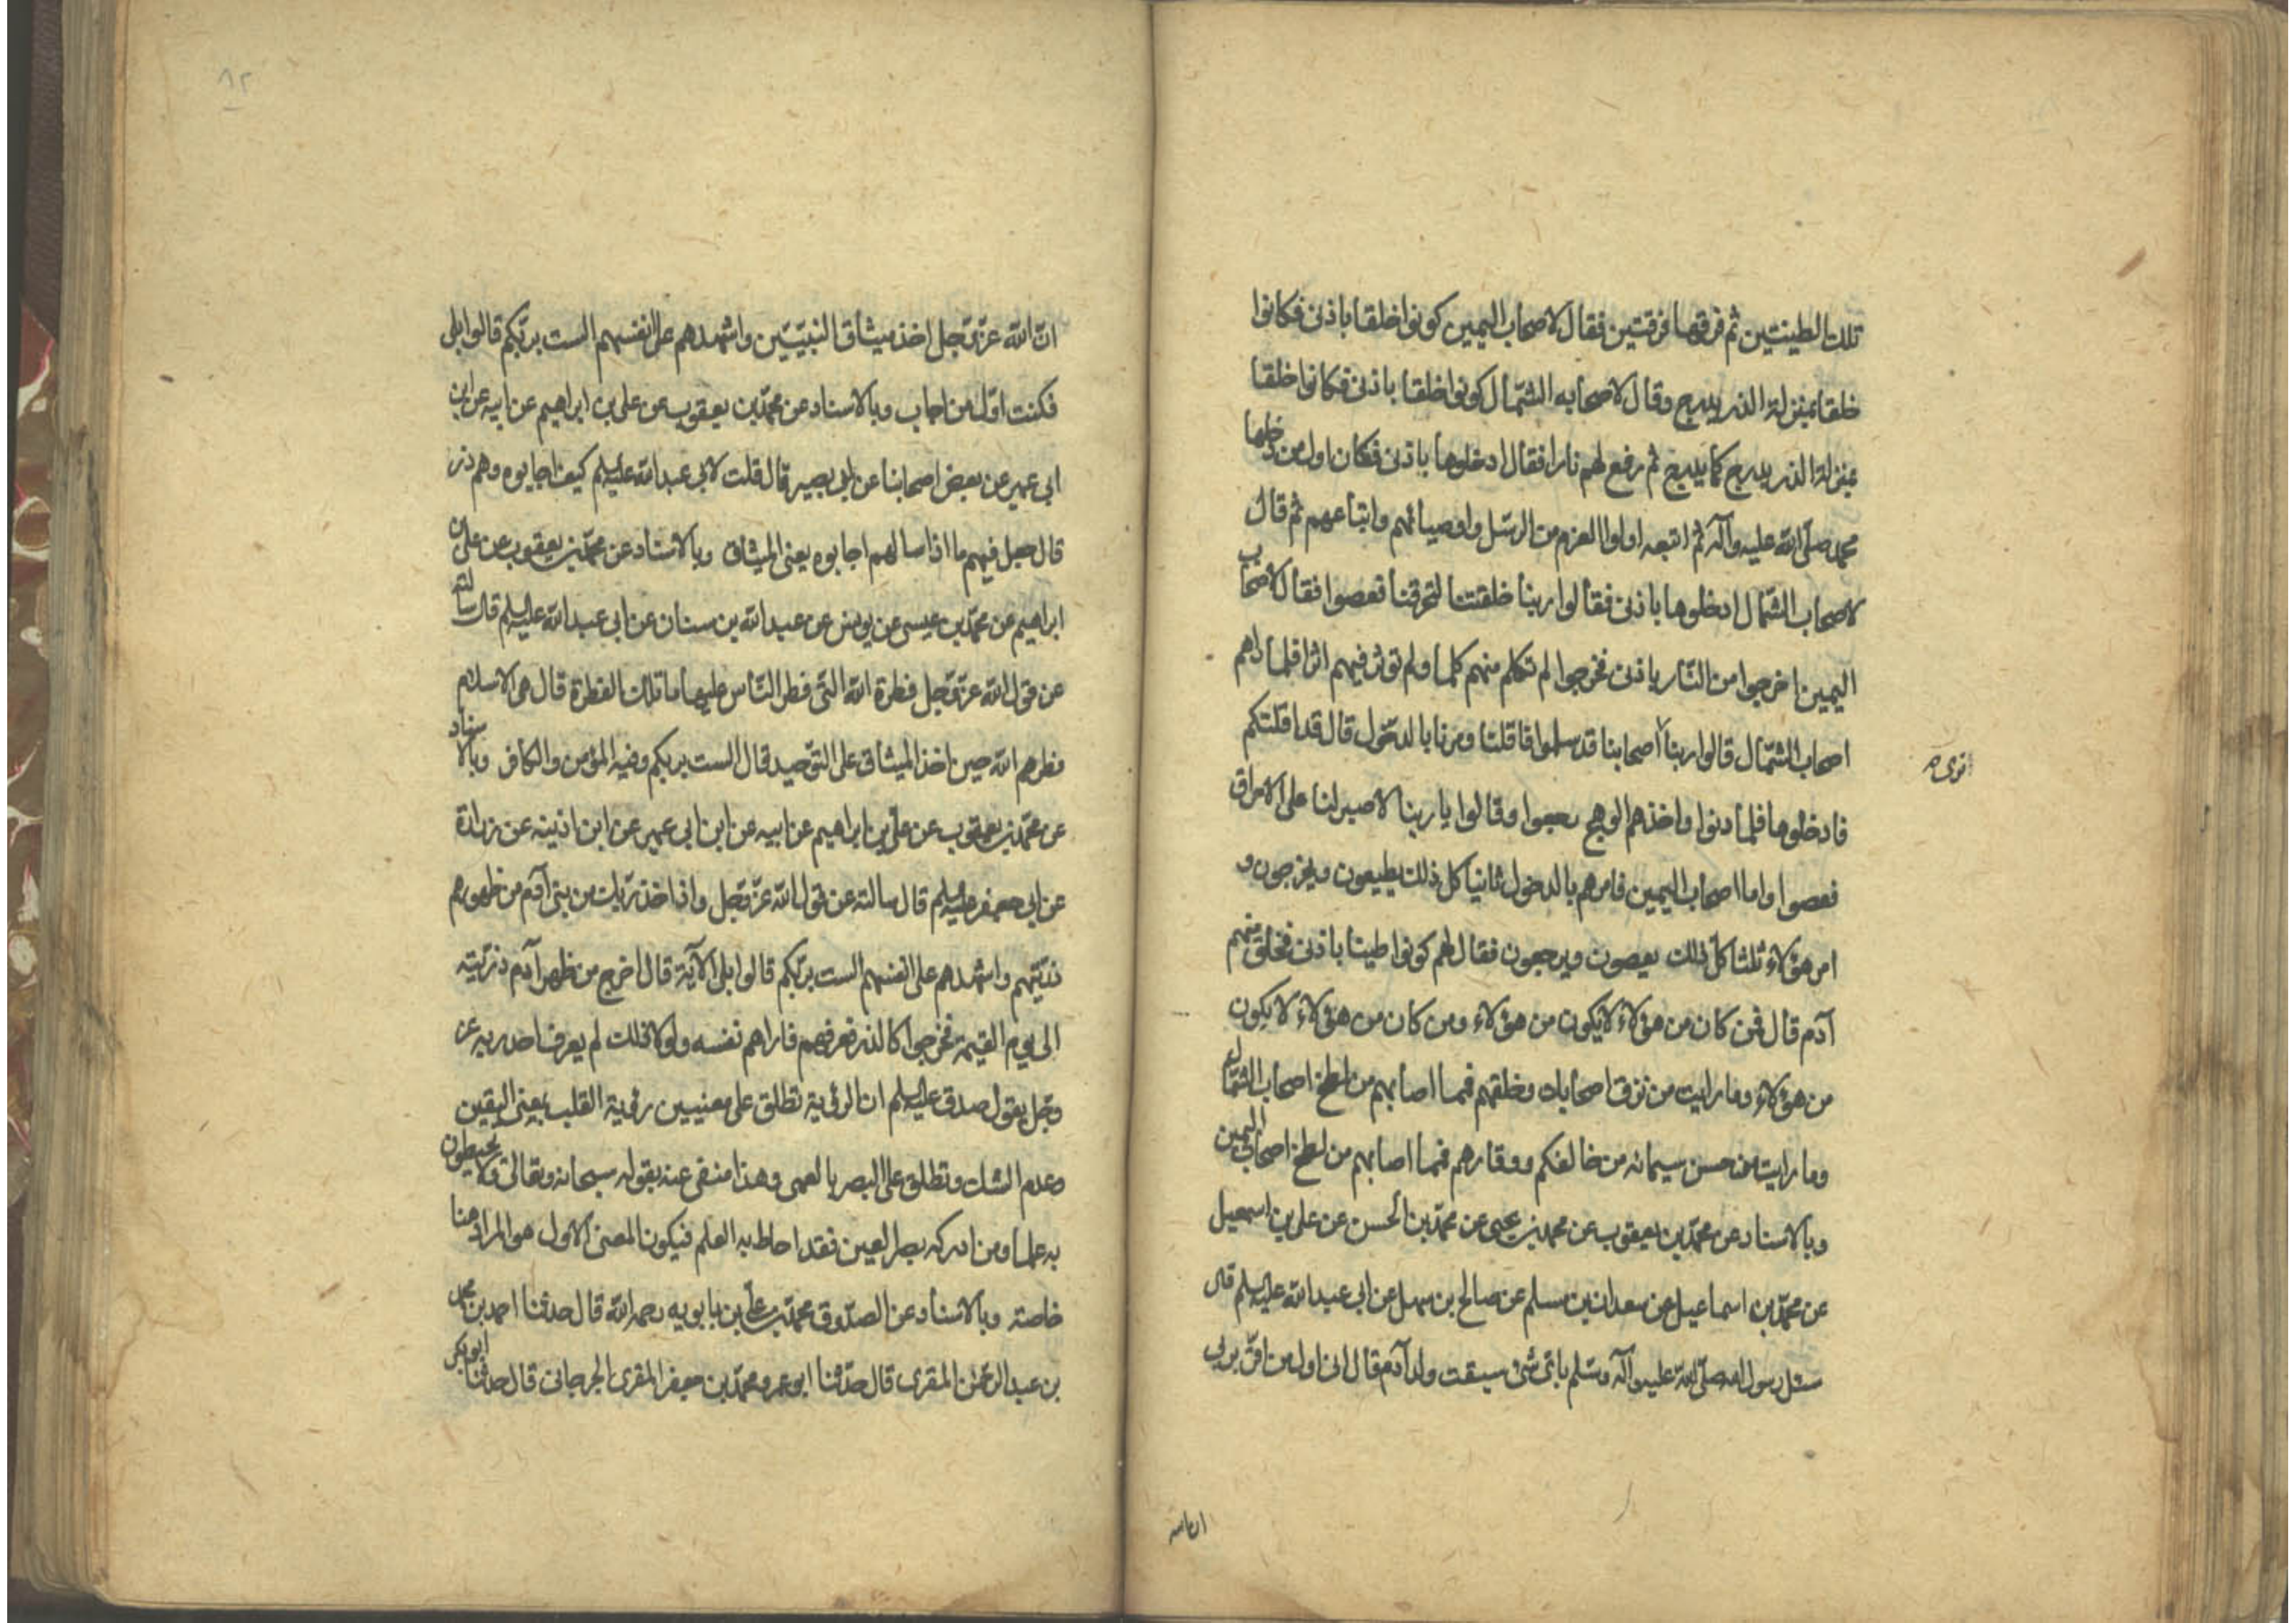 تلك الطينتين ثم فرقهما فرقتين فقال لاصحاب اليمين كونوا خلقا باذنى فكانوا
خلقا بمنزلة الذر يدرج وقال لاصحاب الشمال كونوا خلقا باذنى فكانوا خلقا
بمنزلة الذر يدرج كما يدرج ثم رفع لهم نارا فقال ادخلوها باذنى فكان اول من دخلها
محمد صلى الله عليه وآله ثم اتبعه اولوا العزم من الرسل واوصيائهم واتباعهم ثم قال
لاصحاب الشمال ادخلوها باذنى فقالوا ربنا خلقتنا لتحرقنا فعصوا فقال لاصحاب
اليمين اخرجوا من النار باذنى فخرجوا لم تكلم منهم كلما ولم توثر فيهم اثرا فلما راهم
اصحاب الشمال قالوا ربنا اصحابنا قد سلموا فاقلنا ومرنا بالدخول قال قد اقلتكم
نرى
فادخلوها فلما دنوا واخذهم الوهج رجعوا وقالوا يا ربنا لا صبر لنا على الاحراق
فعصوا واما اصحاب اليمين فامرهم بالدخول ثانيا كل ذلك يطيعون ويخرجون و
امر هؤلاء ثلثا كل ذلك يعصون ويرجعون فقال لهم كونوا طينا باذنى فخلق منهم
آدم قال فمن كان من هؤلاء لا يكون من هؤلاء ومن كان من هؤلاء لا يكون
من هؤلاء وما رايت من نزق اصحابك وخلقهم فمما اصابهم من لطخ اصحاب الشمال
وما رايت من حسن سيماء من خالفكم ووقارهم فمما اصابهم من لطخ اصحاب اليمين
وبالاسناد عن محمد بن يعقوب عن محمد بن يحيى عن محمد بن الحسن عن على بن اسمعيل
عن محمد بن اسماعيل عن سعدان بن مسلم عن صالح بن سهل عن ابى عبد الله عليه السلم قال
سئل رسول الله صلى الله عليه وآله وسلم باى شئ سبقت ولد آدم قال انى اول من اقر بربى
ان الله

٨٢
ان الله عز وجل اخذ ميثاق النبيين واشهدهم على انفسهم الست بربكم قالوا بلى
فكنت اول من اجاب وبالاسناد عن محمد بن يعقوب عن على بن ابراهيم عن ابيه عن ابن
ابى عمير عن بعض اصحابنا عن ابى بصير قال قلت لابى عبد الله عليه السلم كيف اجابوه وهم ذر
قال جعل فيهم ما اذا سالهم اجابوه يعنى الميثاق وبالاسناد عن محمد بن يعقوب عن على بن
ابراهيم عن محمد بن عيسى عن يونس عن عبد الله بن سنان عن ابى عبد الله عليه السلم قال سالته
عن قول الله عز وجل فطرة الله التى فطر الناس عليها ما تلك الفطرة قال هى الاسلام
فطرهم الله حين اخذ الميثاق على التوحيد قال الست بربكم وفيه المؤمن والكافر وبالاسناد
عن محمد بن يعقوب عن على بن ابراهيم عن ابيه عن ابن ابى عمير عن ابن اذينه عن زرارة
عن ابى جعفر عليه السلم قال سالته عن قول الله عز وجل واذ اخذ ربك من بنى آدم من ظهورهم
ذريتهم واشهدهم على انفسهم الست بربكم قالوا بلى الآية قال اخرج من ظهر آدم ذريته
الى يوم القيمة فخرجوا كالذر فعرفهم فاراهم نفسه ولولا ذلك لم يعرف احد ربه عز
وجل يقول صدق عليه السلم ان الرؤية تطلق على معنيين رؤية القلب بمعنى اليقين
وعدم الشك وتطلق على البصر بالعمى وهذا منفى عنه بقوله سبحانه وتعالى ولا يحيطون
به علما ومن ادركه بصر العين فقد احاط به العلم فيكون المعنى الاول هو المراد هنا
خاصته وبالاسناد عن الصدوق محمد بن على بن بابويه رحمه الله قال حدثنا احمد بن محمد
بن عبد الرحمن المقرى قال حدثنا ابو عمرو محمد بن جعفر المقرى الجرجانى قال حدثنا ابو بكر